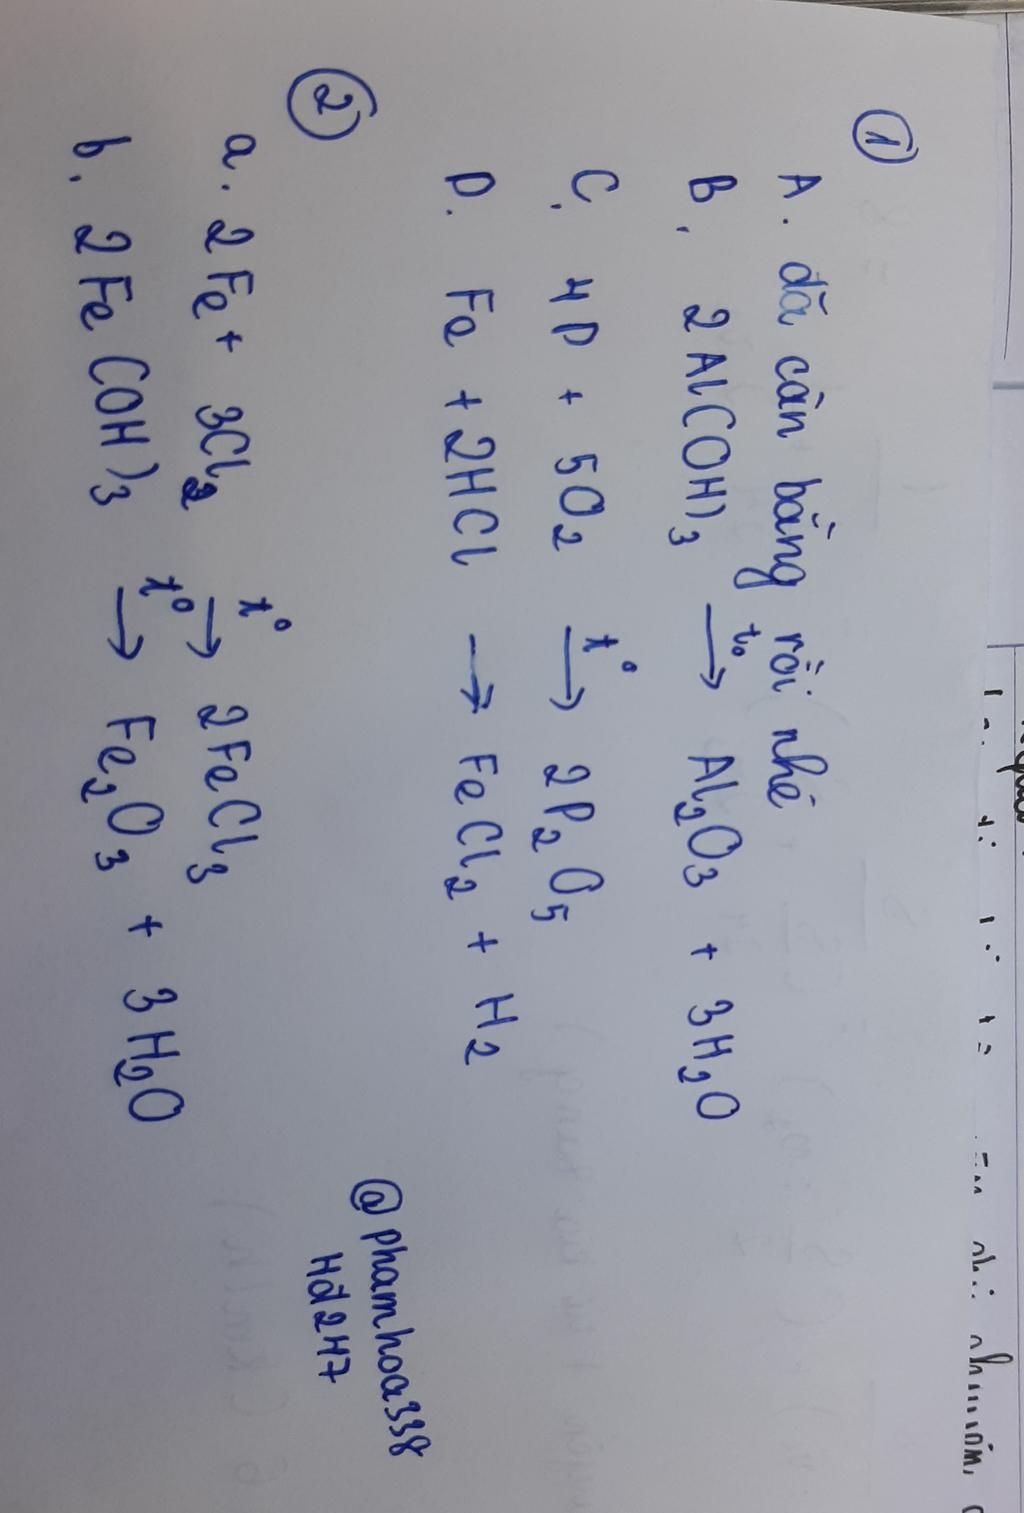 ①
A. đã cân bằng rồi nhé
B. 2Al(OH)3 →t° Al2O3 + 3H2O
C. 4P + 5O2 →t° 2P2O5
D. Fe + 2HCl → FeCl2 + H2
②
a. 2Fe + 3Cl2 →t° 2FeCl3
b. 2Fe(OH)3 →t° Fe2O3 + 3H2O
@phamhoa338
Hđ247